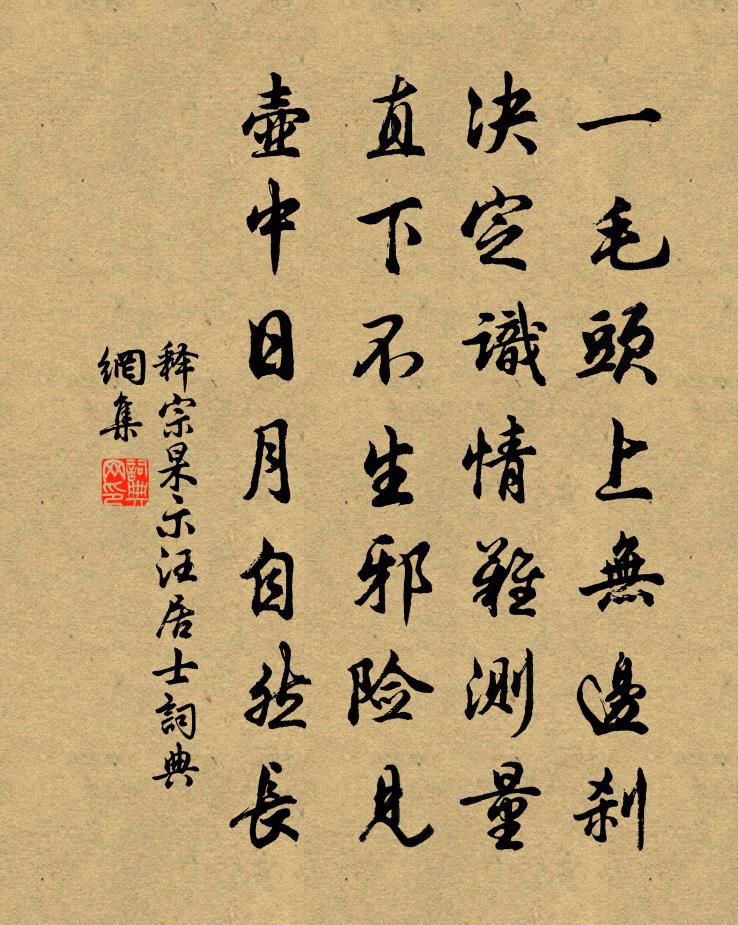 一毛頭上無邊刹
决定識情難測量
直下不生邪险見
壺中日月自然長
释宗杲示汪居士詞典
網集
詞典网印